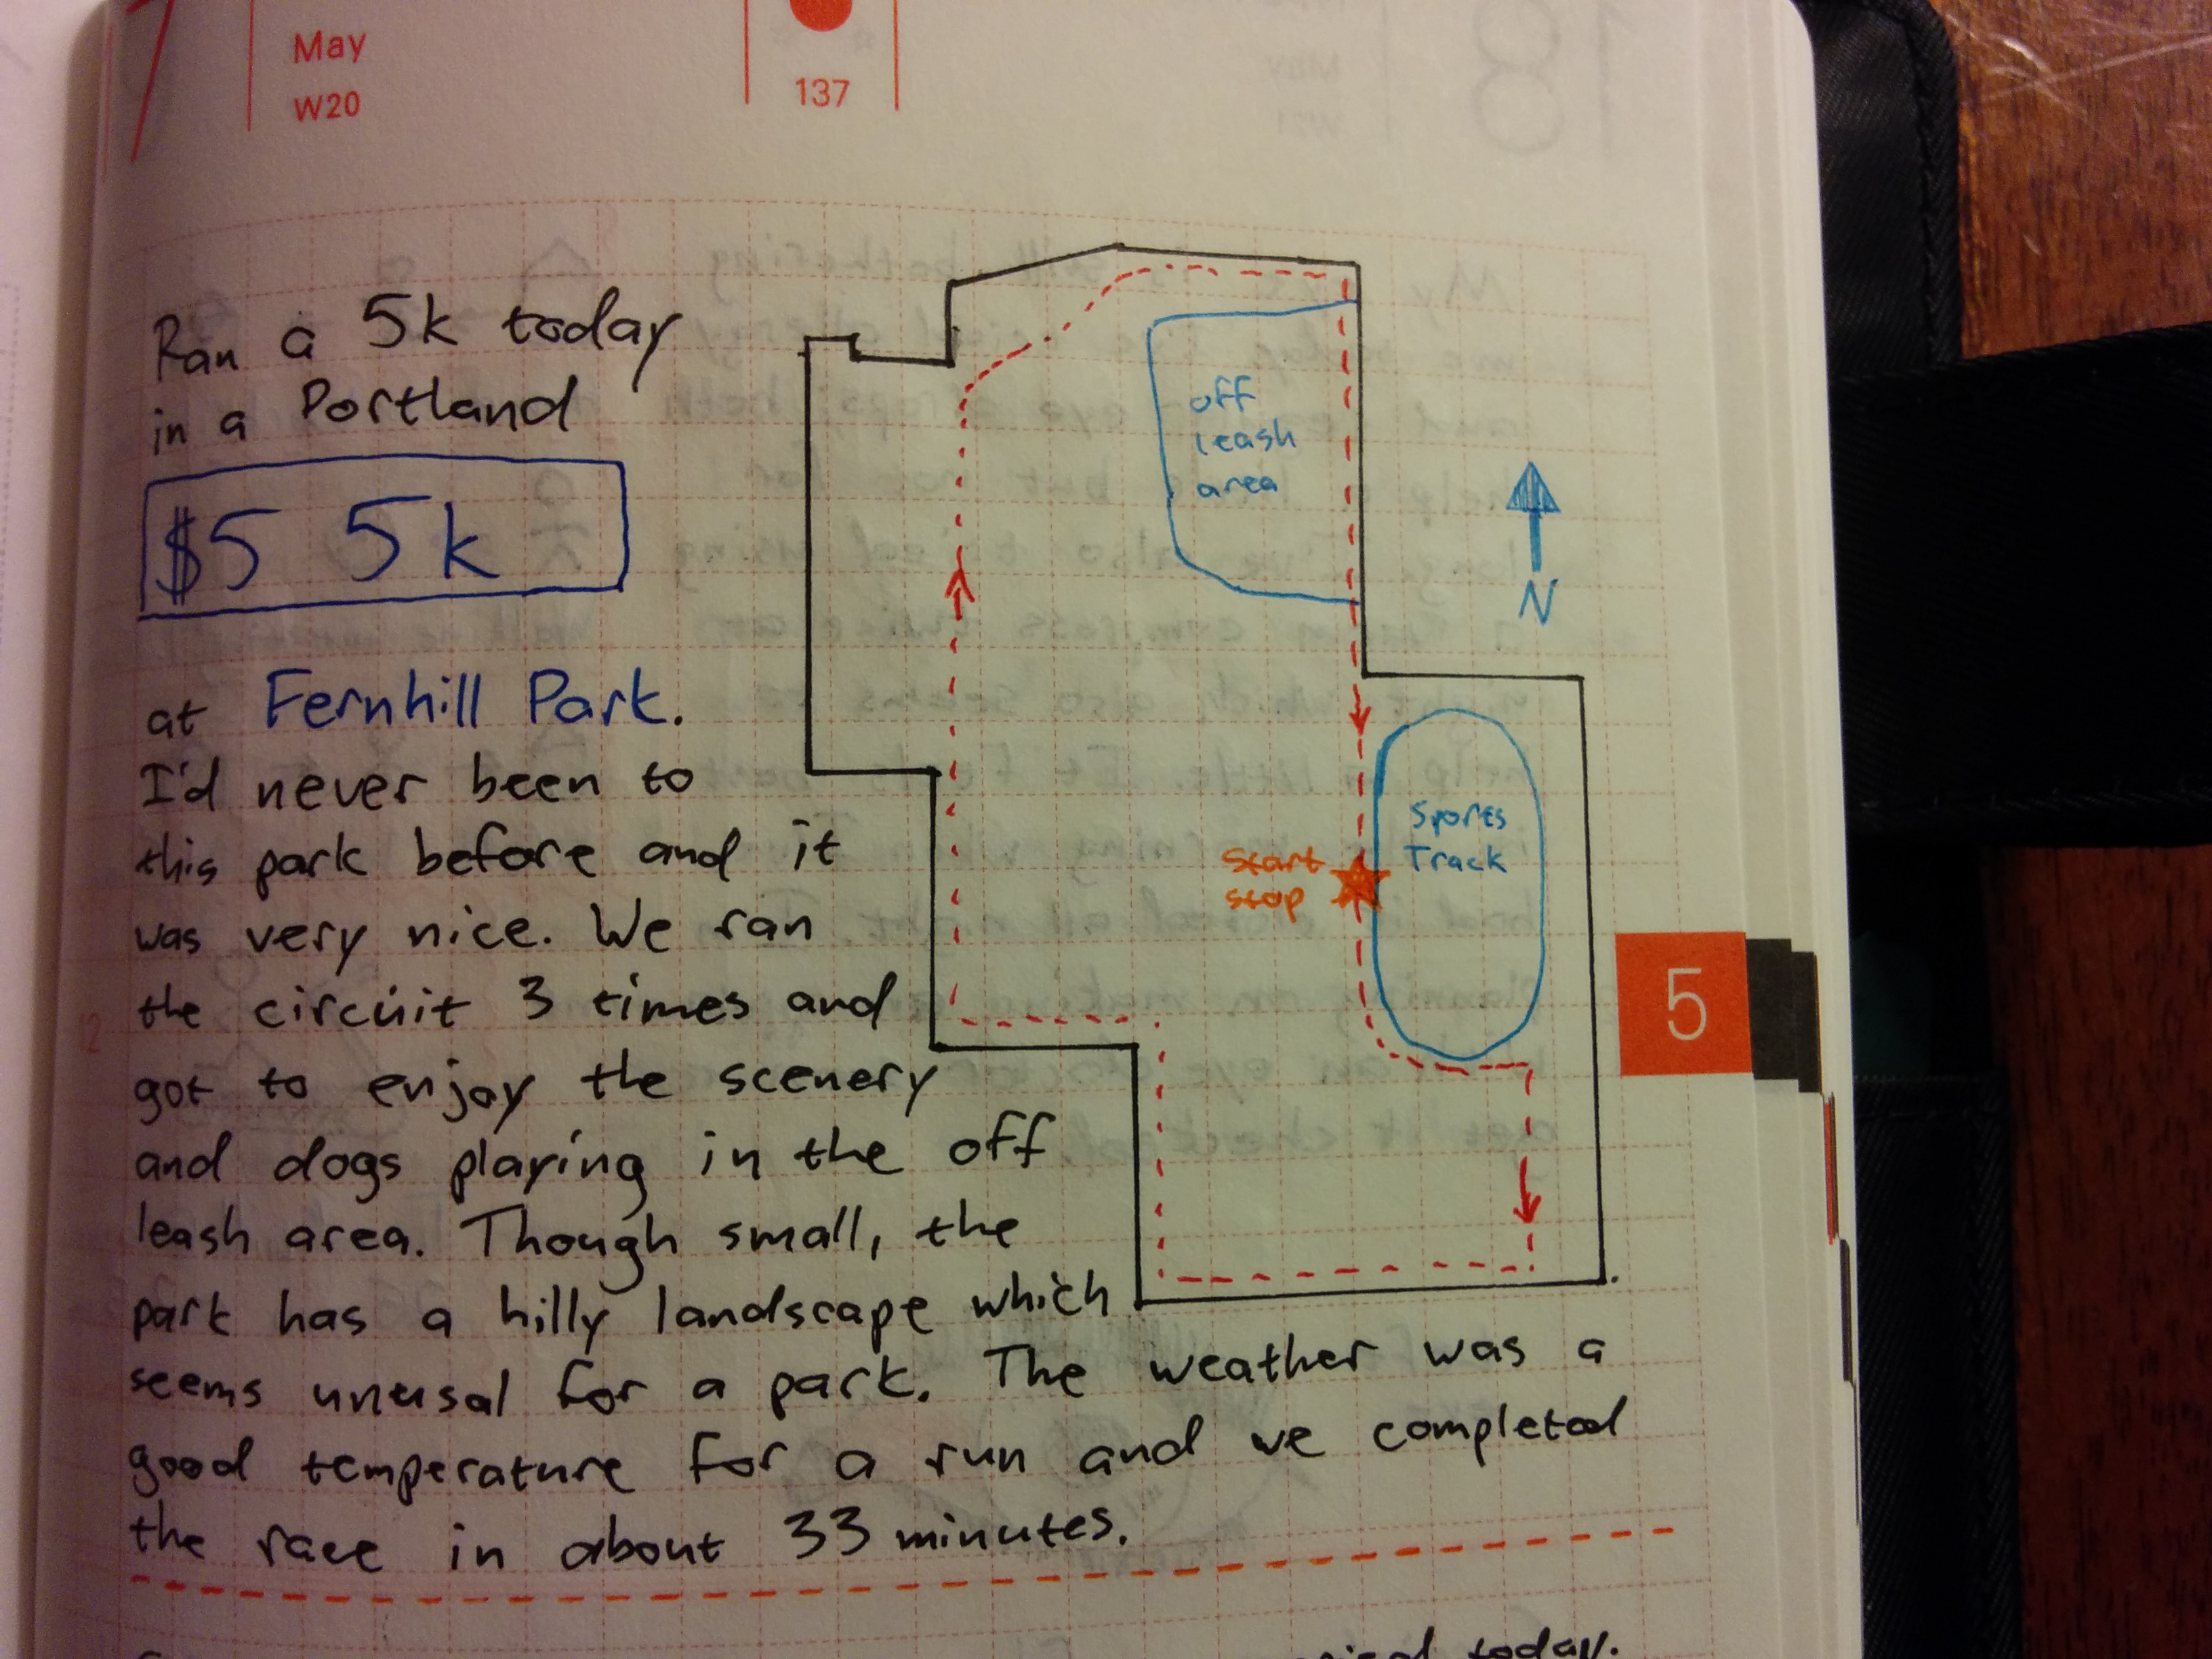 7
May
W20
137
Ran a 5k today
in a Portland
$5 5k
at Fernhill Park.
I'd never been to
this park before and it
was very nice. We ran
the circuit 3 times and
got to enjoy the scenery
and dogs playing in the off
leash area. Though small, the
park has a hilly landscape which
seems unusal for a park. The weather was a
good temperature for a run and we completed
the race in about 33 minutes.
off
leash
area
N
Sports
Track
Start
stop
5
today.
18